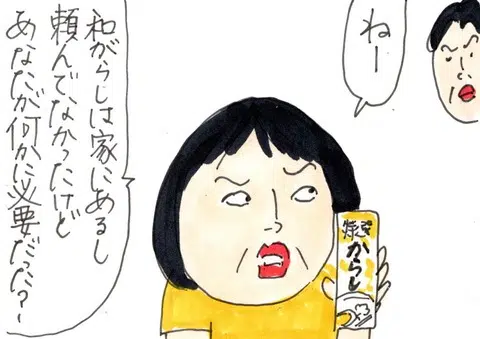 ねー
和がらしは家にあるし
頼んでなかったけど
あなたが何かに必要だった?
からし